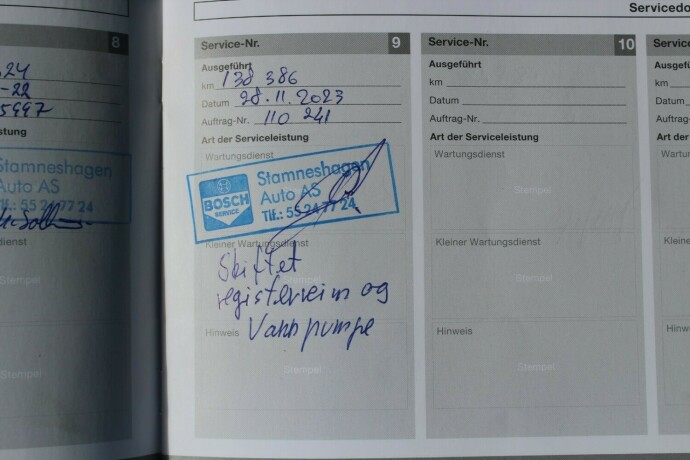 Servicedo
8
24
-22
5997
stung
Stamneshagen
Auto AS
55 24 77 24
dienst
Stempel
Stempel
Service-Nr. 9
Ausgeführt
km 138 386
Datum 28.11.2023
Auftrag-Nr. 110 241
Art der Serviceleistung
Wartungsdienst
BOSCH
SERVICE
Stamneshagen
Auto AS
Tlf.: 55 24 77 24
Kleiner Wartungsdienst
Skiftet
registerreim og
Vannpumpe
Hinweis
Stempel
Service-Nr. 10
Ausgeführt
km
Datum
Auftrag-Nr.
Art der Serviceleistung
Wartungsdienst
Stempel
Kleiner Wartungsdienst
Stempel
Hinweis
Stempel
Service
Ausgefü
km
Datum
Auftrag-N
Art der S
Wartung
Kleiner W
Hinweis